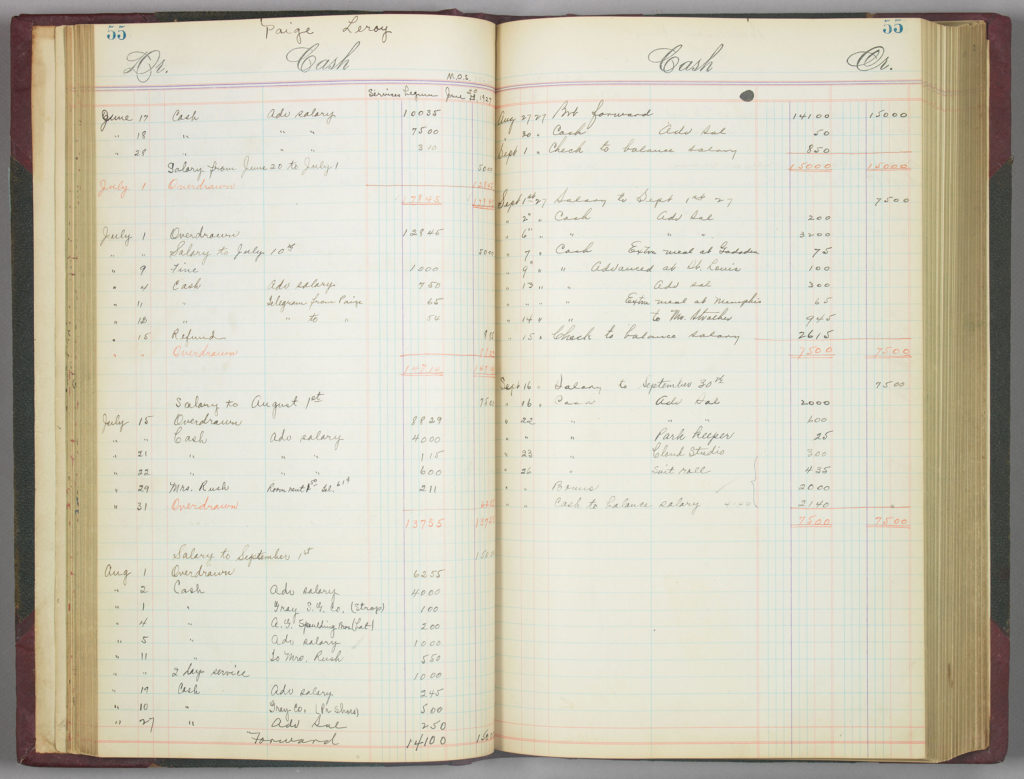 55
Paige Leroy
Dr. Cash
M.O.S.
Services began June 1927
June 17 Cash Adv salary 10035
" 18 " " " 7500
" 28 " " " 310
Salary from June 20 to July 1 5000
July 1 Overdrawn 12845
17845 17845
July 1 Overdrawn 12845
" " Salary to July 10th 5000
" 9 Fine 1000
" 4 Cash Adv salary 750
" 11 " Telegram from Paige 65
" 12 " " to " 54
" 15 Refund
" " Overdrawn
14714
Salary to August 1st 7500
July 15 Overdrawn 8829
" " Cash Adv salary 4000
" 21 " " " 115
" 22 " " " 600
" 29 Mrs. Rush Room rent 211
" 31 Overdrawn
13755 13755
Salary to September 1st
Aug 1 Overdrawn 6255
" 2 Cash Adv salary 4000
" 1 " Gray S. G. Co. (Straps) 100
" 4 " A. G. Spaulding Bros 200
" 5 " Adv salary 1000
" 11 " To Mrs. Rush 550
" " 2 day service 1000
" 17 Cash Adv salary 245
" 10 " Gray Co. (Pr Shoes) 500
" 27 " Adv Sal 250
Forward 14100
55
Cash Cr.
Aug 27 27 Brt forward 14100 15000
" 30 " Cash Adv Sal 50
Sept 1 " Check to balance salary 850
15000 15000
Sept 1st 27 Salary to Sept 1st 27 7500
" 2 " Cash Adv Sal 200
" 6 " " " " 3200
" 7 " Cash Extra meal at Gadsden 75
" 9 " " Advanced at St. Louis 100
" 13 " " Adv sal 300
" " " " Extra meal at Memphis 65
" 14 " " to Mr. Strather 945
" 15 " Check to balance salary 2615
7500 7500
Sept 16 " Salary to September 30th 7500
" 16 " Cash Adv Sal 2000
" 22 " " " 600
" " " Park Keeper 25
" 23 " Cloud Studio 300
" 26 " Suit roll 435
" " Bonus 2000
" " Cash to balance salary 2140
7500 7500